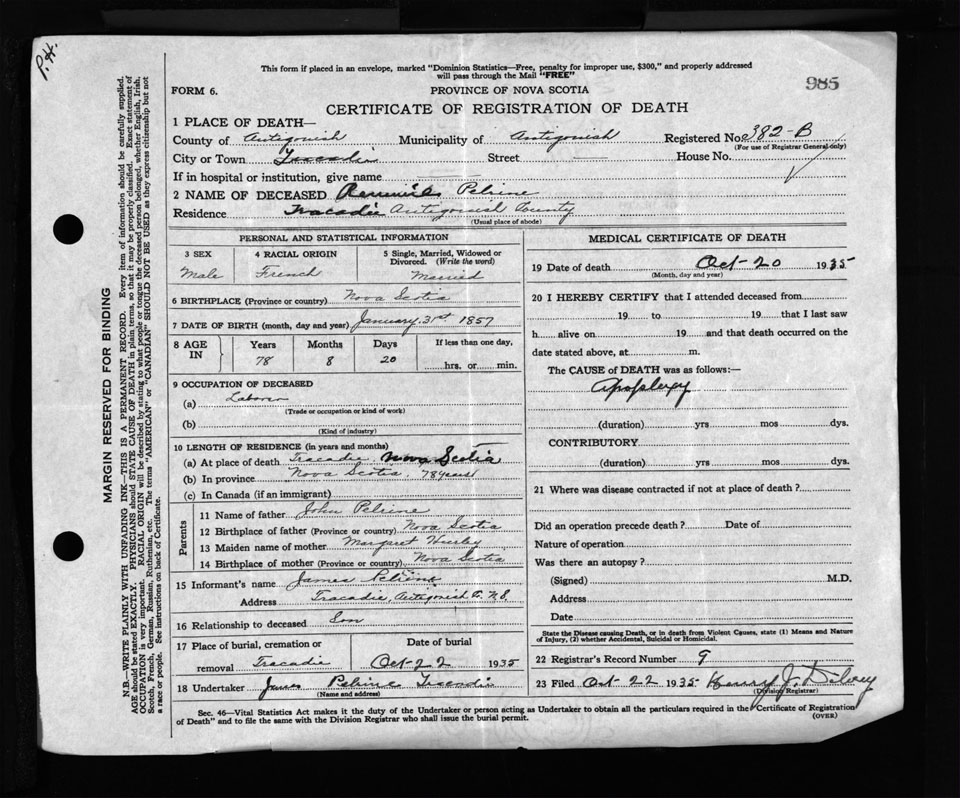 P.H.
This form if placed in an envelope, marked "Dominion Statistics—Free, penalty for improper use, $300," and properly addressed
will pass through the Mail "FREE"
985
FORM 6.
PROVINCE OF NOVA SCOTIA
CERTIFICATE OF REGISTRATION OF DEATH
1 PLACE OF DEATH—
County of Antigonish Municipality of Antigonish Registered No. 382-B
(For use of Registrar General only)
City or Town Tracadie Street House No.
If in hospital or institution, give name
2 NAME OF DECEASED Pelrine
Residence Tracadie Antigonish County
(Usual place of abode)
PERSONAL AND STATISTICAL INFORMATION
3 SEX 4 RACIAL ORIGIN 5 Single, Married, Widowed or
Divorced. (Write the word)
Male French Married
6 BIRTHPLACE (Province or country) Nova Scotia
7 DATE OF BIRTH (month, day and year) January 31st 1857
8 AGE IN Years Months Days If less than one day,
78 8 20 hrs. or min.
9 OCCUPATION OF DECEASED
(a) Laborer
(Trade or occupation or kind of work)
(b)
(Kind of industry)
10 LENGTH OF RESIDENCE (in years and months)
(a) At place of death Tracadie Nova Scotia
(b) In province Nova Scotia 78 years
(c) In Canada (if an immigrant)
Parents
11 Name of father John Pelrine
12 Birthplace of father (Province or country) Nova Scotia
13 Maiden name of mother Margaret
14 Birthplace of mother (Province or country) Nova Scotia
15 Informant's name James Pelrine
Address Tracadie, Antigonish Co. N.S.
16 Relationship to deceased Son
17 Place of burial, cremation or Date of burial
removal Tracadie Oct-22 1935
18 Undertaker James Pelrine Tracadie
(Name and address)
MEDICAL CERTIFICATE OF DEATH
19 Date of death Oct-20 1935
(Month, day and year)
20 I HEREBY CERTIFY that I attended deceased from
19 to 19 that I last saw
h alive on 19 and that death occurred on the
date stated above, at m.
The CAUSE of DEATH was as follows:—
Apoplexy
(duration) yrs mos dys.
CONTRIBUTORY
(duration) yrs mos dys.
21 Where was disease contracted if not at place of death?
Did an operation precede death? Date of
Nature of operation
Was there an autopsy?
(Signed) M.D.
Address
Date
State the Disease causing Death, or in death from Violent Causes, state (1) Means and Nature
of Injury, (2) whether Accidental, Suicidal or Homicidal.
22 Registrar's Record Number 9
23 Filed Oct 22 1935 Henry J.
(Division Registrar)
Sec. 46—Vital Statistics Act makes it the duty of the Undertaker or person acting as Undertaker to obtain all the particulars required in the Certificate of Registration
of Death" and to file the same with the Division Registrar who shall issue the burial permit.
(OVER)
MARGIN RESERVED FOR BINDING
N.B.—WRITE PLAINLY WITH UNFADING INK—THIS IS A PERMANENT RECORD. Every item of information should be carefully supplied.
AGE should be stated EXACTLY. PHYSICIANS should STATE CAUSE OF DEATH in plain terms, so that it may be properly classified. Exact statement of
OCCUPATION is very important. RACIAL ORIGIN will be described by stating to what people or tongue the deceased person belonged, whether English, Irish,
Scotch, French, German, Russian, Ruthenian, etc. The terms "AMERICAN" or "CANADIAN" SHOULD NOT BE USED as they express citizenship but not
a race or people. See instructions on back of Certificate.